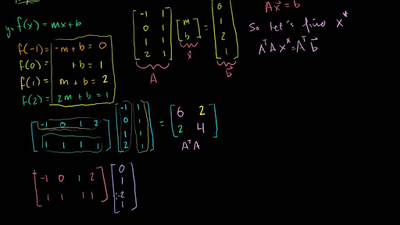 y = f(x) = mx + b
f(-1) = -m + b = 0
f(0) = + b = 1
f(1) = m + b = 2
f(2) = 2m + b = 1
[-1 1; 0 1; 1 1; 2 1] [m; b] = [0; 1; 2; 1]
A x⃗ b⃗
Ax⃗ = b
So let's find x*
AᵀA x* = Aᵀ b⃗
[-1 0 1 2; 1 1 1 1] [-1 1; 0 1; 1 1; 2 1] = [6 2; 2 4]
AᵀA
[-1 0 1 2; 1 1 1 1] [0; 1; 2; 1]